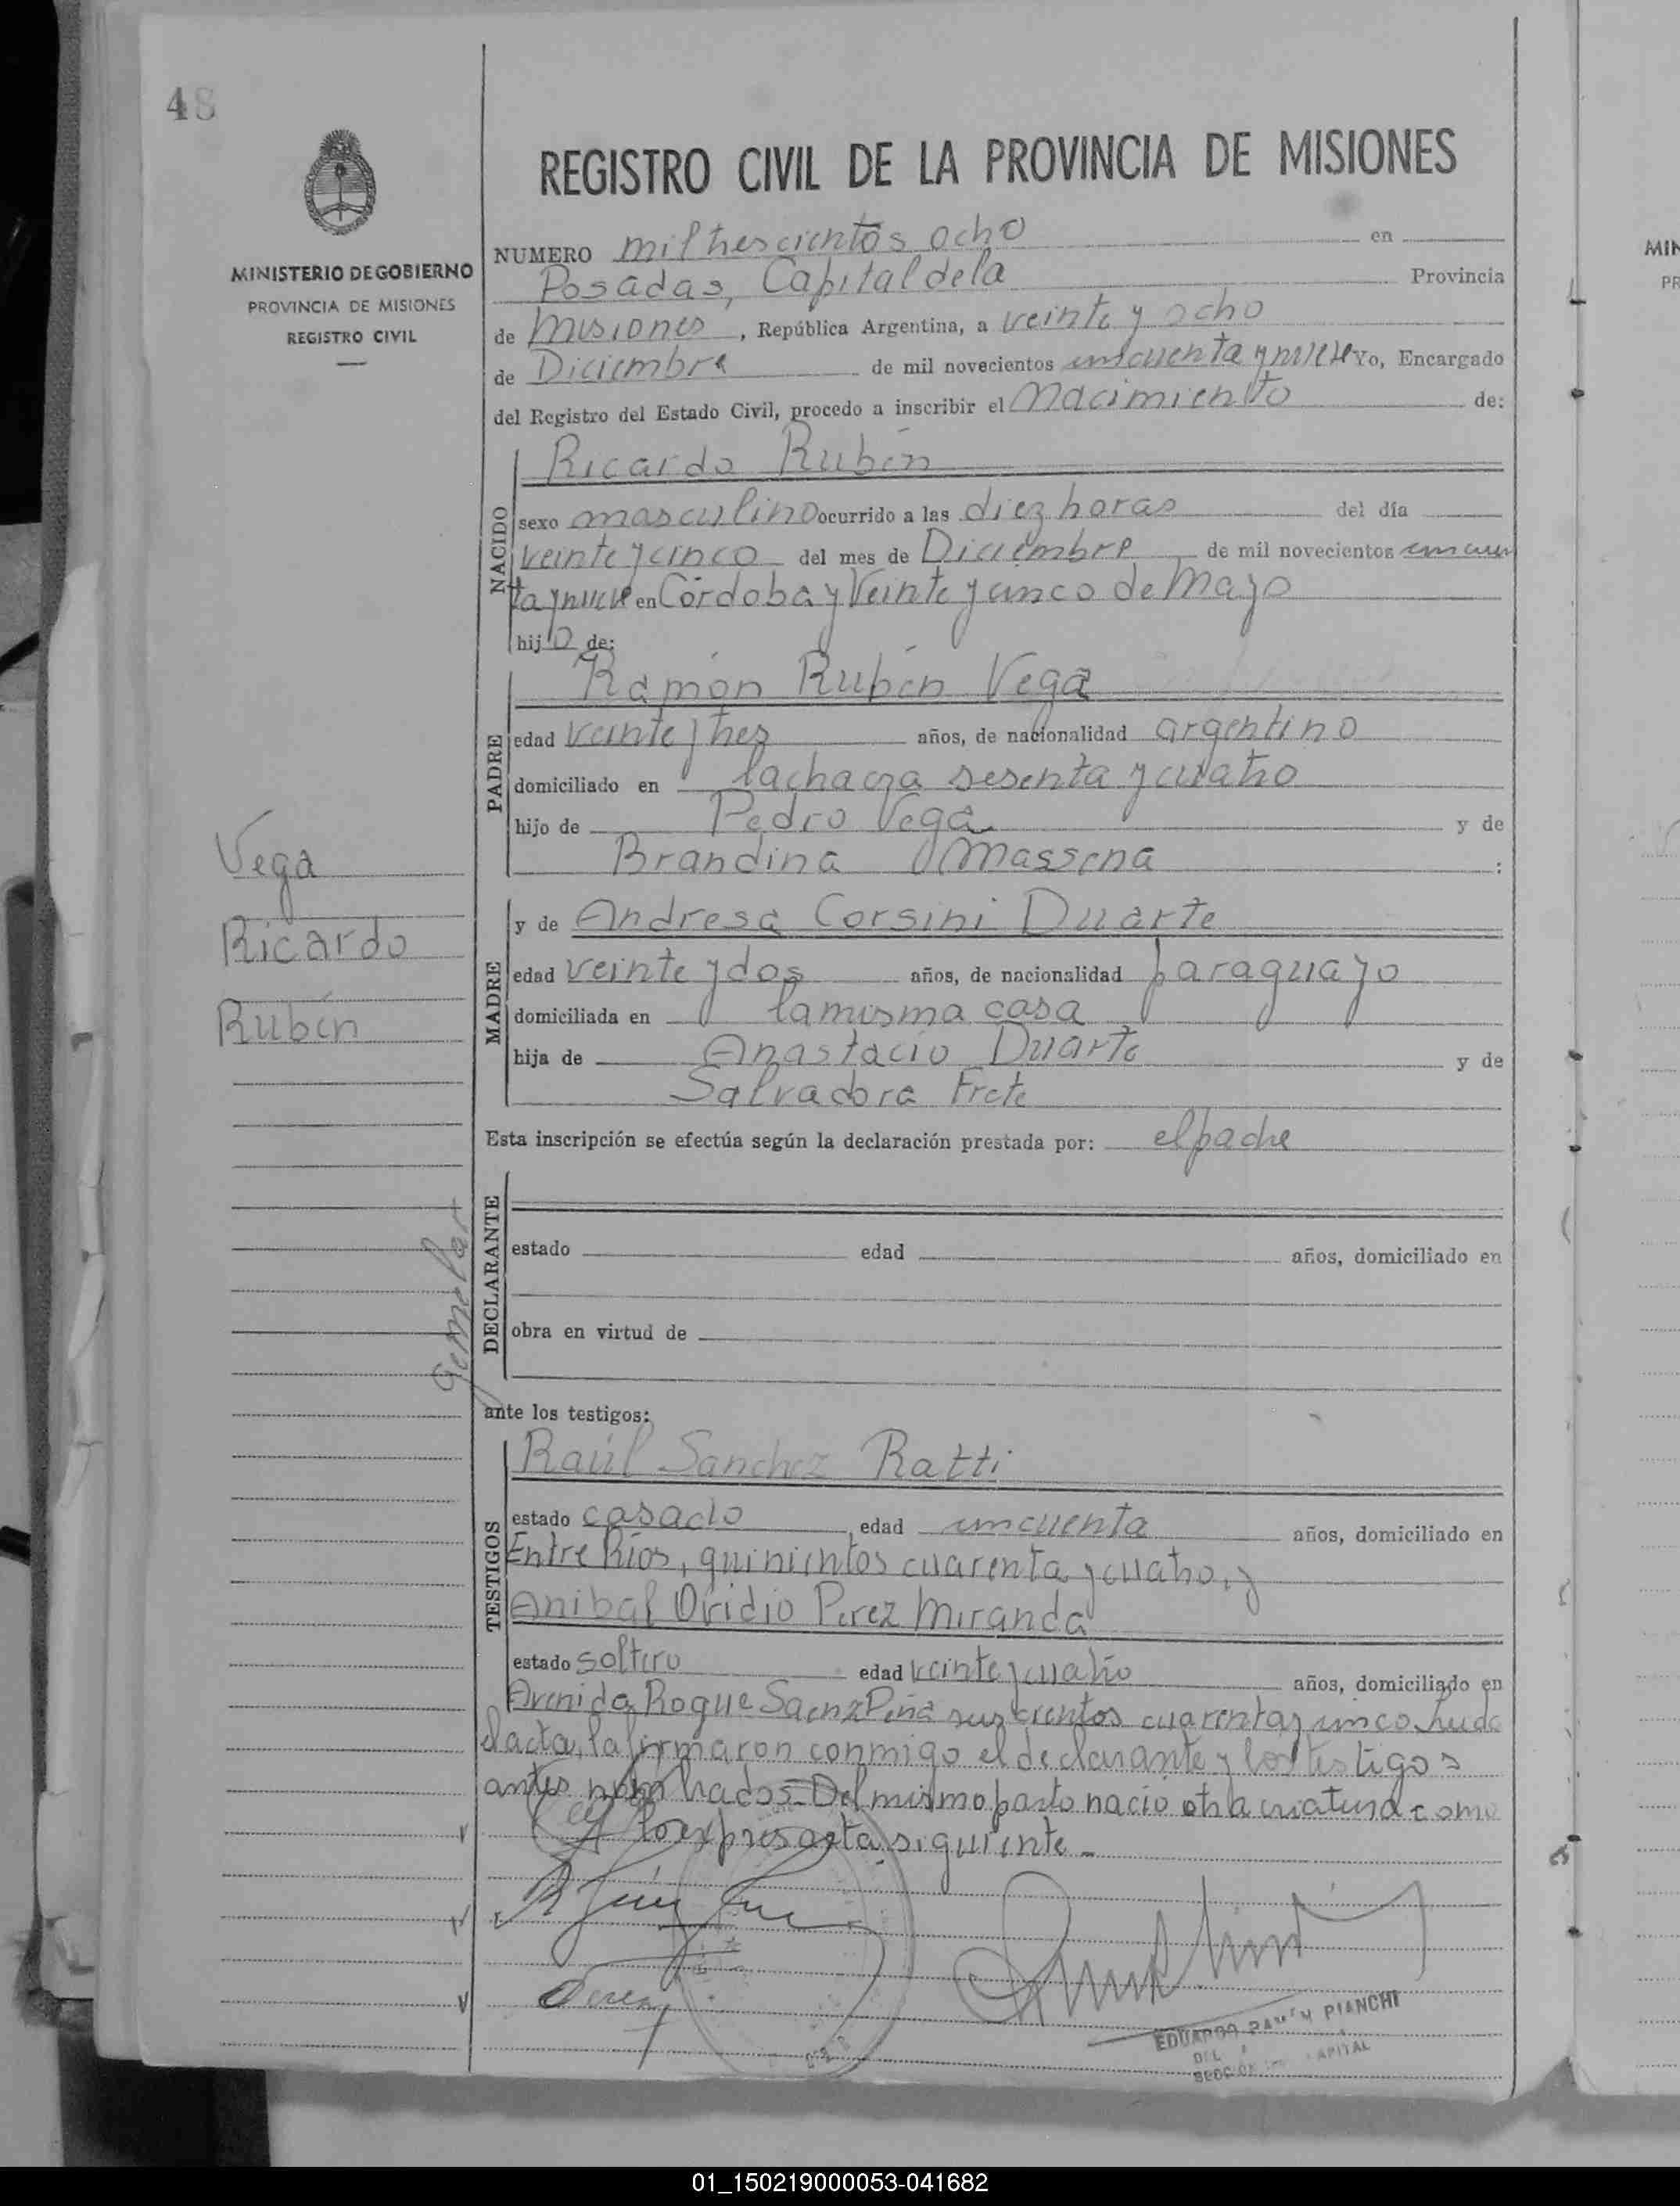 48
MINISTERIO DE GOBIERNO
PROVINCIA DE MISIONES
REGISTRO CIVIL
REGISTRO CIVIL DE LA PROVINCIA DE MISIONES
NUMERO mil trescientos ocho en
Posadas, Capital de la Provincia
de Misiones, República Argentina, a veinte y ocho
de Diciembre de mil novecientos cincuenta y nueve Yo, Encargado
del Registro del Estado Civil, procedo a inscribir el Nacimiento de:
NACIDO
Ricardo Rubén
sexo masculino ocurrido a las diez horas del día
veinte y cinco del mes de Diciembre de mil novecientos cincuen
ta y nueve en Córdoba y Veinte y cinco de Mayo
hijo de:
PADRE
Ramón Rubén Vega
edad veinte y tres años, de nacionalidad argentino
domiciliado en la chacra sesenta y cuatro
hijo de Pedro Vega y de
Brandina Massena :
MADRE
y de Andresa Corsini Duarte
edad veinte y dos años, de nacionalidad paraguayo
domiciliada en la misma casa
hija de Anastacio Duarte y de
Salvadora Frete
Esta inscripción se efectúa según la declaración prestada por: el padre
DECLARANTE
estado edad años, domiciliado en
obra en virtud de
ante los testigos:
TESTIGOS
Raúl Sanchez Ratti
estado casado edad cincuenta años, domiciliado en
Entre Ríos, quinientos cuarenta y cuatro, y
Anibal Ovidio Perez Miranda
estado soltero edad veinte y cuatro años, domiciliado en
Avenida Roque Saenz Peña seiscientos cuarenta y cinco. Leida
el acta, la firmaron conmigo el declarante y los testigos
antes nombrados. Del mismo parto nació otra criatura como
lo expresa acta siguiente.
Vega
Ricardo
Rubén
Gemelar
Perez
EDUARDO RAMON PIANCHI
CAPITAL
MIN
PR
01_150219000053-041682